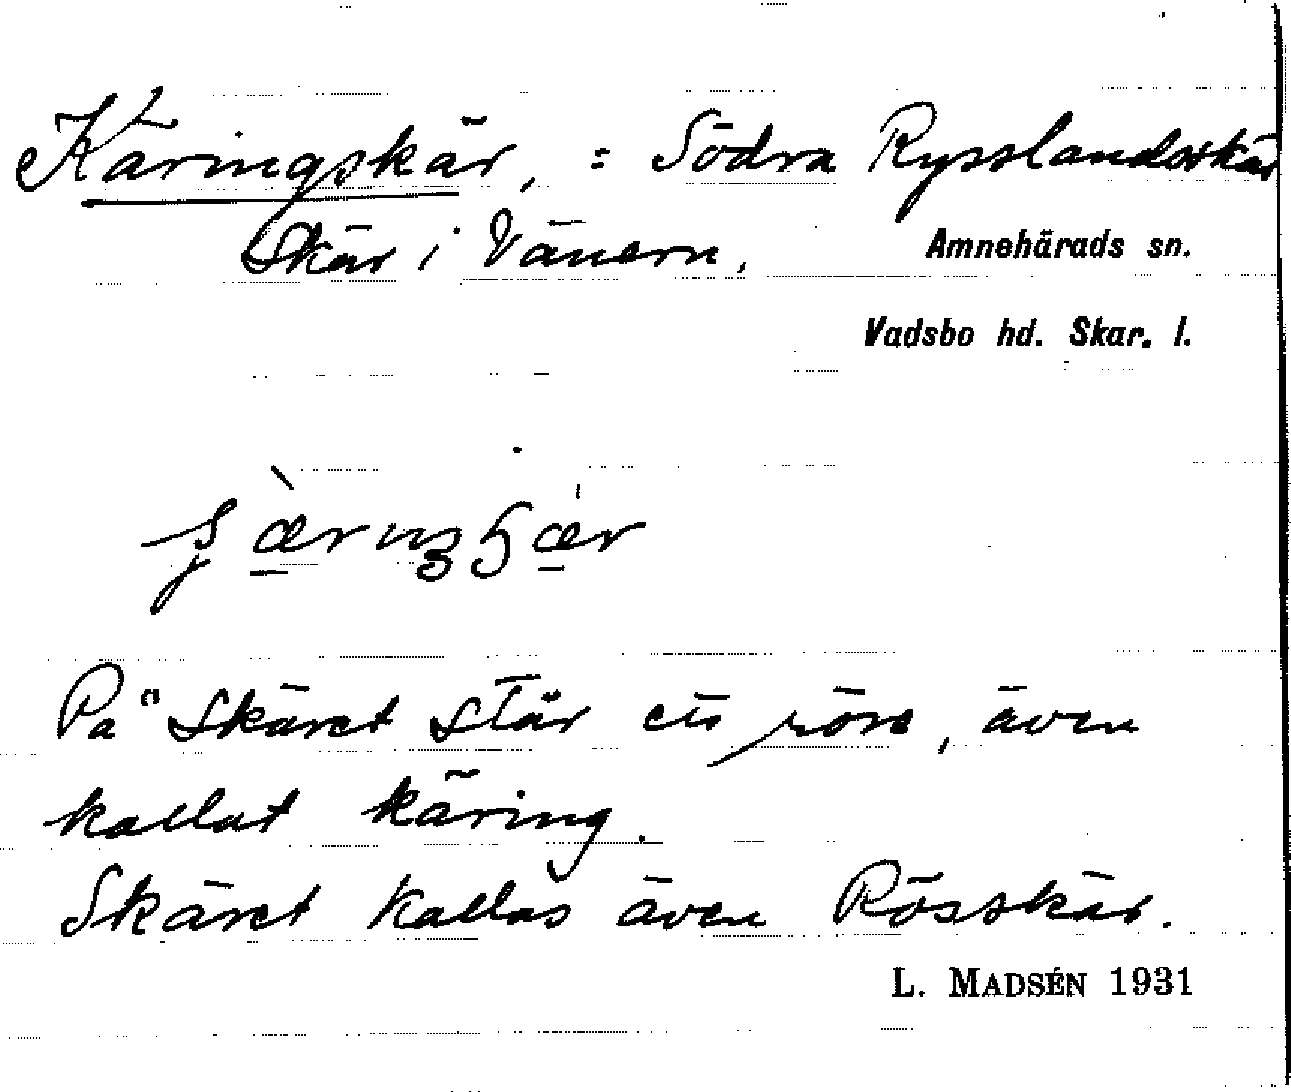 Käringskär, = Södra Rysslandsskär
Skär i Vänern.
Amnehärads sn.
Vadsbo hd. Skar. l.
På skäret står ett röse, även
kallat käring.
Skäret kallas även Rösskär.
L. MADSÉN 1931